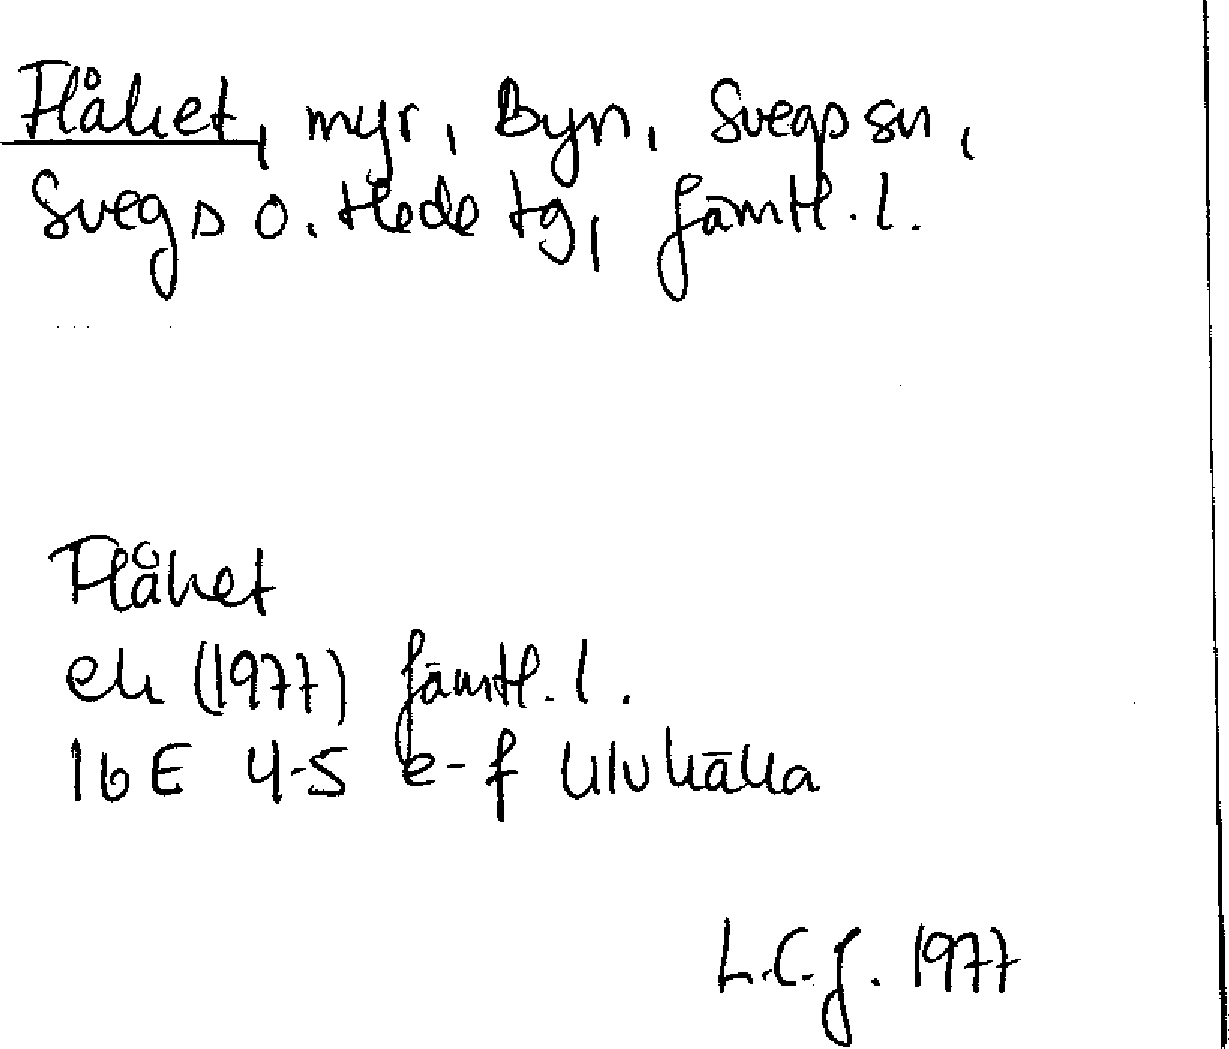 Flåket, myr, Byn, Svegs sn,
Svegs o. Hede tg, Jämtl. l.
Flåket
ek (1977) Jämtl. l.
16 E 4-5 e-f Ulvkälla
L.C.J. 1977